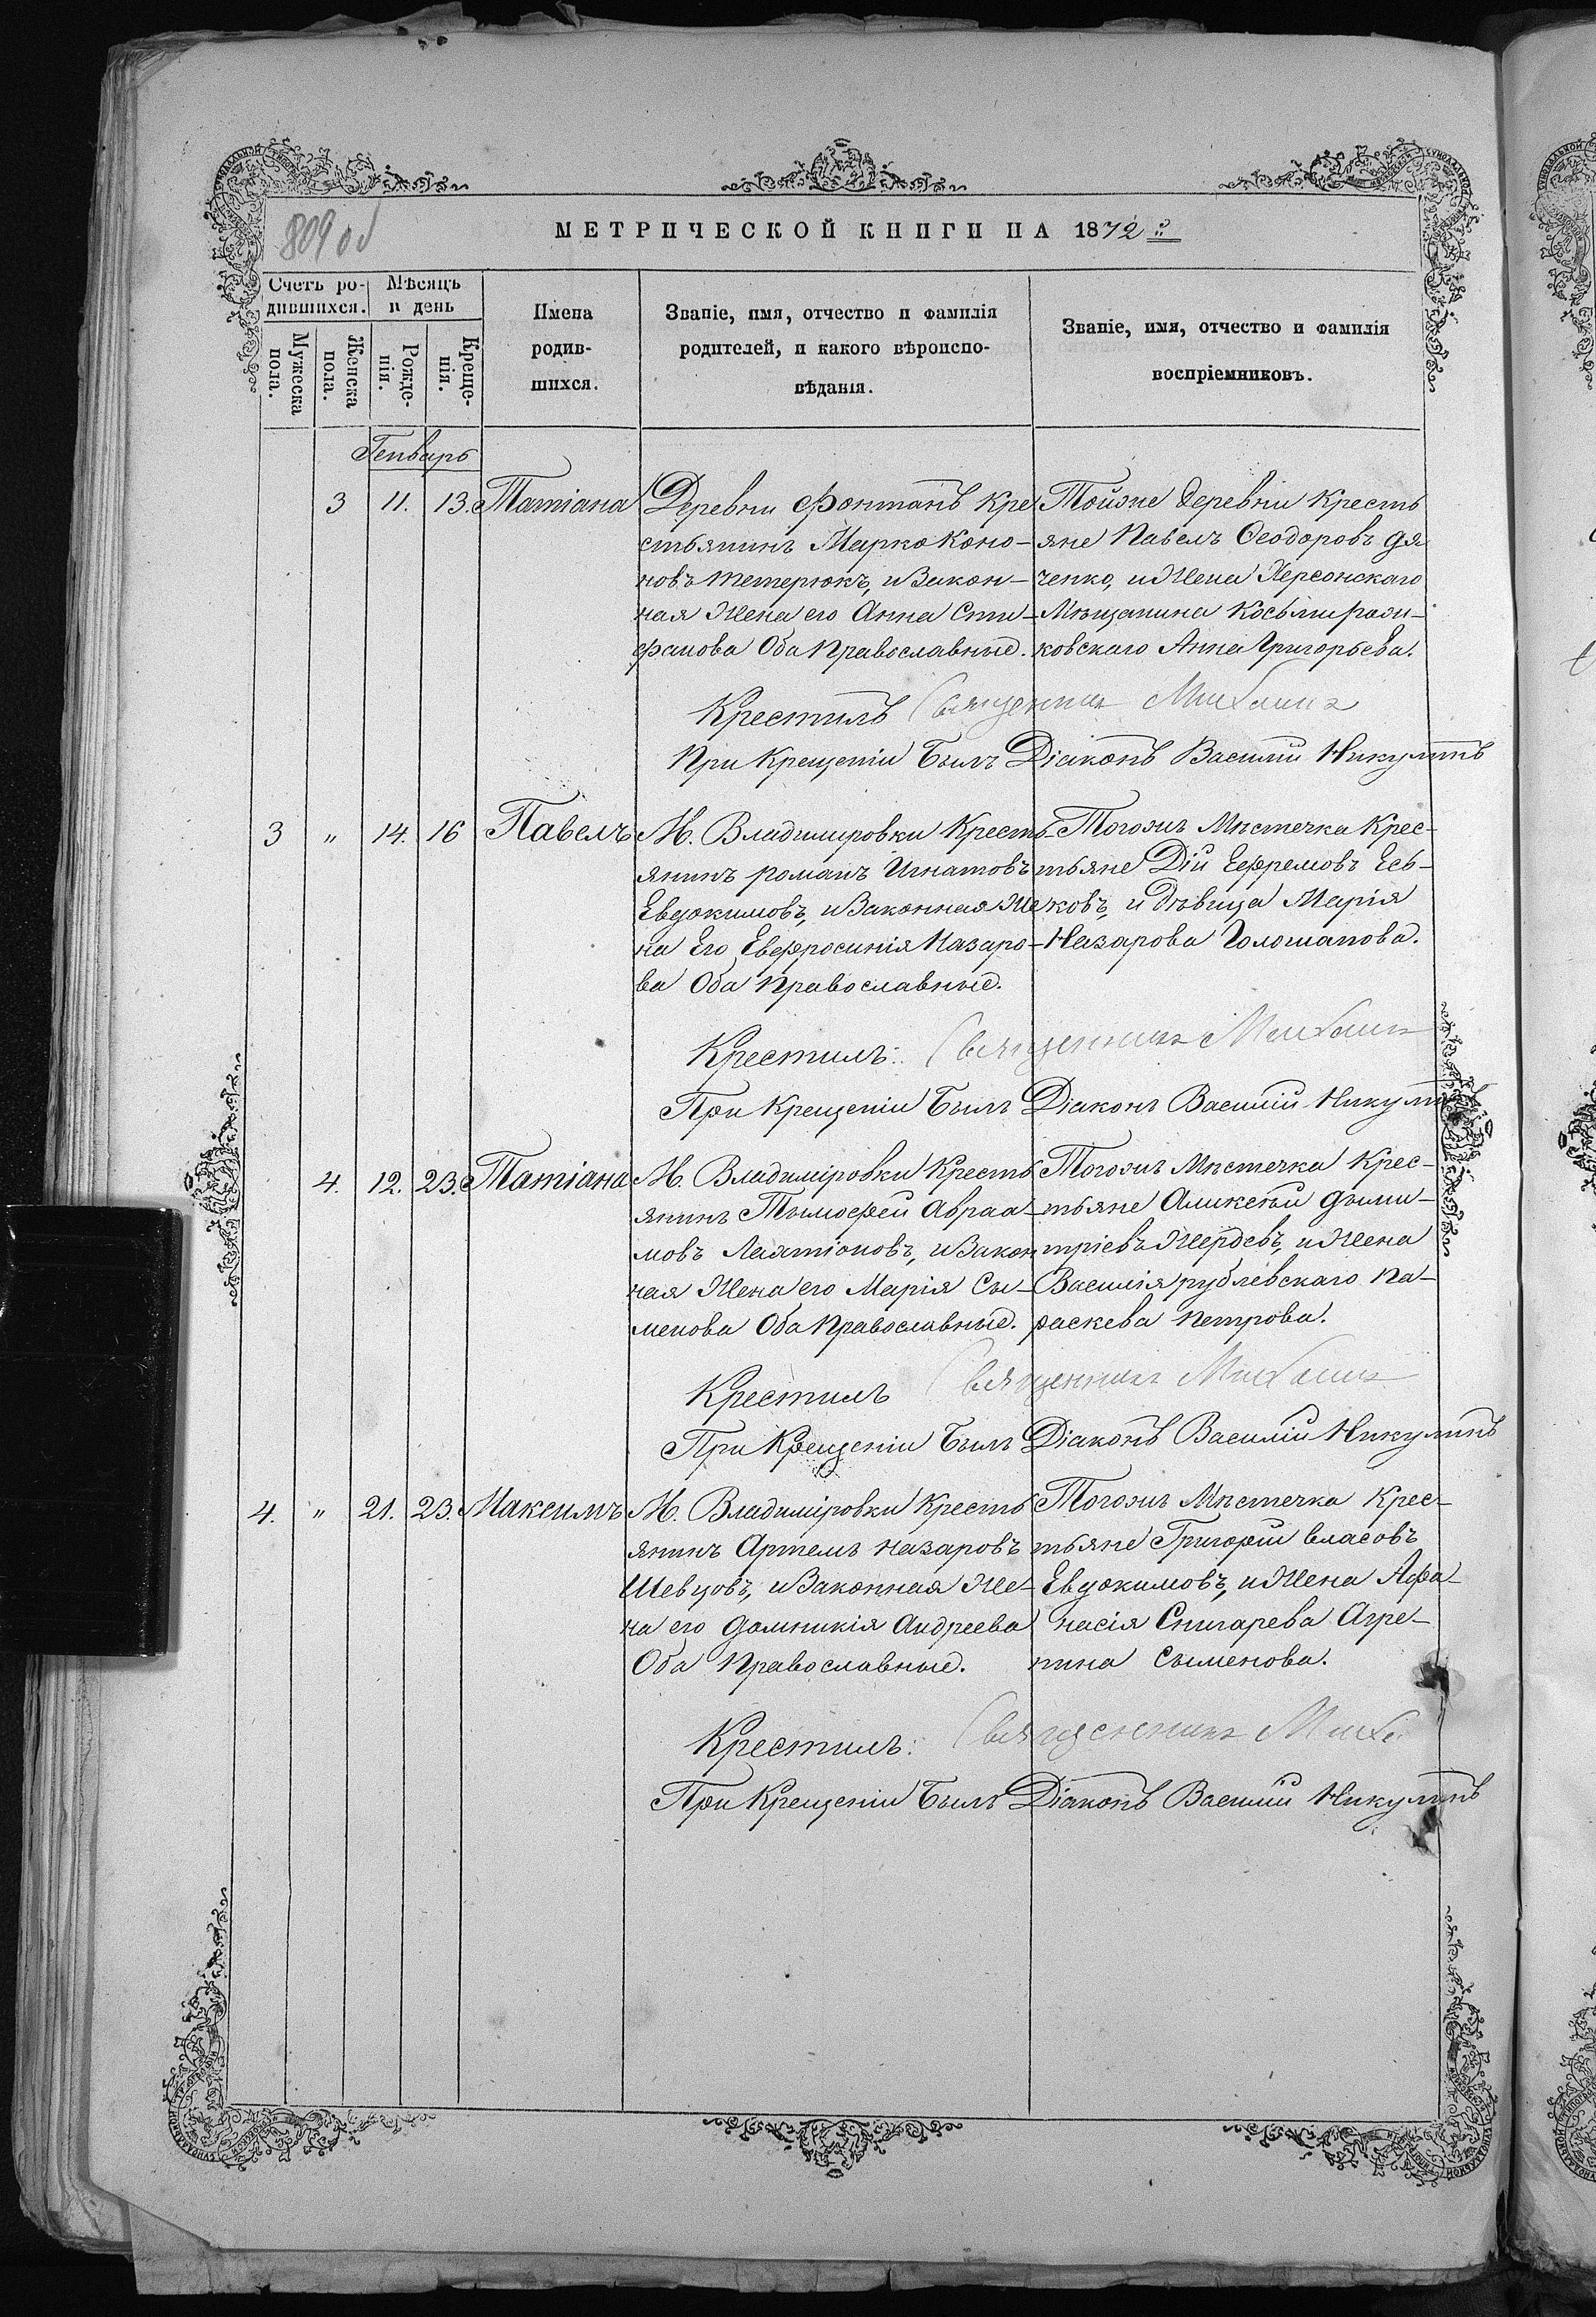 809 об
МЕТРИЧЕСКОЙ КНИГИ НА 1872 г.
Счетъ ро-
дившихся.
Мѣсяцъ
и день
Мужеска
пола.
Женска
пола.
Рожде-
нія.
Креще-
нія.
Имена
родив-
шихся.
Званіе, имя, отчество и фамилія
родителей, и какого вѣроиспо-
вѣданія.
Званіе, имя, отчество и фамилія
воспріемниковъ.
Генварь
3 11. 13. Татіана
Деревни Фонтанъ Кре
стьянинъ Марко Коно-
новъ Тетерюкъ, и Закон-
ная Жена его Анна Сти-
фанова Оба Православные.
Тойже деревни Кресть
яне Павелъ Ѳеодоровъ Дя
ченко, и Жена Херсонскаго
Мѣщанина Косьмы
ковскаго Анна Григорьева.
Крестилъ Священникъ Михаилъ
При Крещеніи Былъ Діаконъ Василій Никулинъ
3 " 14. 16 Павелъ
М. Владимировки Кресть
янинъ Романъ Игнатовъ
Евдокимовъ, и Законная Же
на Его Евфросинія Назаро-
ва Оба Православные.
Тогожъ Мѣстечка Крес-
тьяне Дій Ефремовъ Есь-
ковъ, и дѣвица Марія
Назарова Голошапова.
Крестилъ: Священникъ Михаилъ
При Крещеніи Былъ Діаконъ Василій Никулинъ
4. 12. 23. Татіана
М. Владиміровки Кресть
янинъ Тымофей Авраа-
мовъ Лактіоновъ, и Закон
ная Жена его Марія Сы-
менова Оба Православные.
Тогожъ Мѣстечка Крес-
тьяне Аликсѣй Дыми-
тріевъ Жердевъ, и Жена
Василія Рублевскаго Па-
раскева Петрова.
Крестилъ Священникъ Михаилъ
При Крещеніи Былъ Діаконъ Василій Никулинъ
4. " 21. 23. Максимъ
М. Владиміровки Кресть
янинъ Артемъ Назаровъ
Шевцовъ, и Законная Же-
на его Домникія Андреева
Оба Православные.
Тогожъ Мѣстечка Крес-
тьяне Григорій Власовъ
Евдокимовъ, и Жена Афа-
насія Снигарева Агре-
пина Сыменова.
Крестилъ: Священникъ Миха
При Крещеніи Былъ Діаконъ Василій Никулинъ